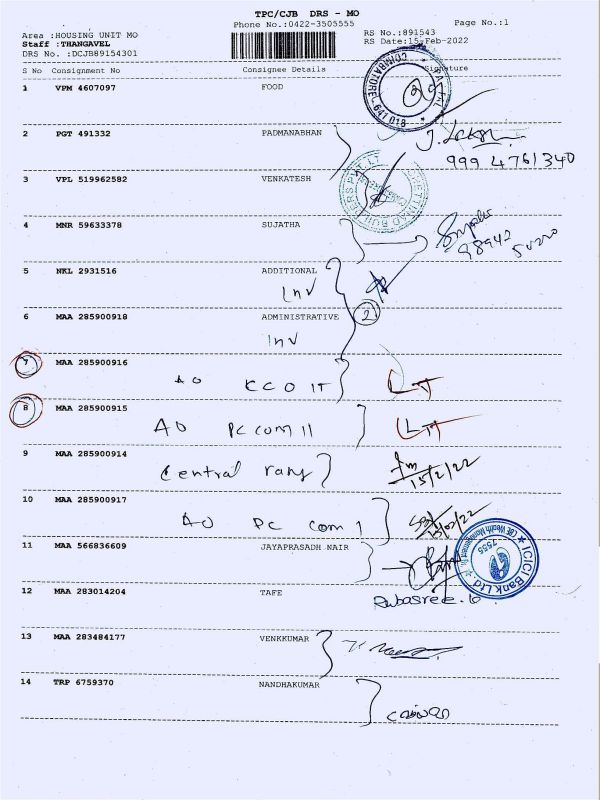 TPC/CJB DRS - MO
Phone No.:0422-3505555
Page No.:1
Area :HOUSING UNIT MO
Staff :THANGAVEL
DRS No. :DCJB89154301
RS No.:891543
RS Date:15-Feb-2022
S No Consignment No Consignee Details Signature
1 VPM 4607097 FOOD
COIMBATORE 641 018
2 PGT 491332 PADMANABHAN
999 4761340
3 VPL 519962582 VENKATESH
4 MNR 59633378 SUJATHA
98942
5 NKL 2931516 ADDITIONAL
Inv
6 MAA 285900918 ADMINISTRATIVE
2
Inv
7 MAA 285900916
AO KCO IT
8 MAA 285900915
AO PC com 11
9 MAA 285900914
Central rang
15/2/22
10 MAA 285900917
AO PC com 1
11 MAA 566836609 JAYAPRASADH NAIR
ICICI Bank Ltd
7555
12 MAA 283014204 TAFE
Rubasree. G
13 MAA 283484177 VENKKUMAR
14 TRP 6759370 NANDHAKUMAR